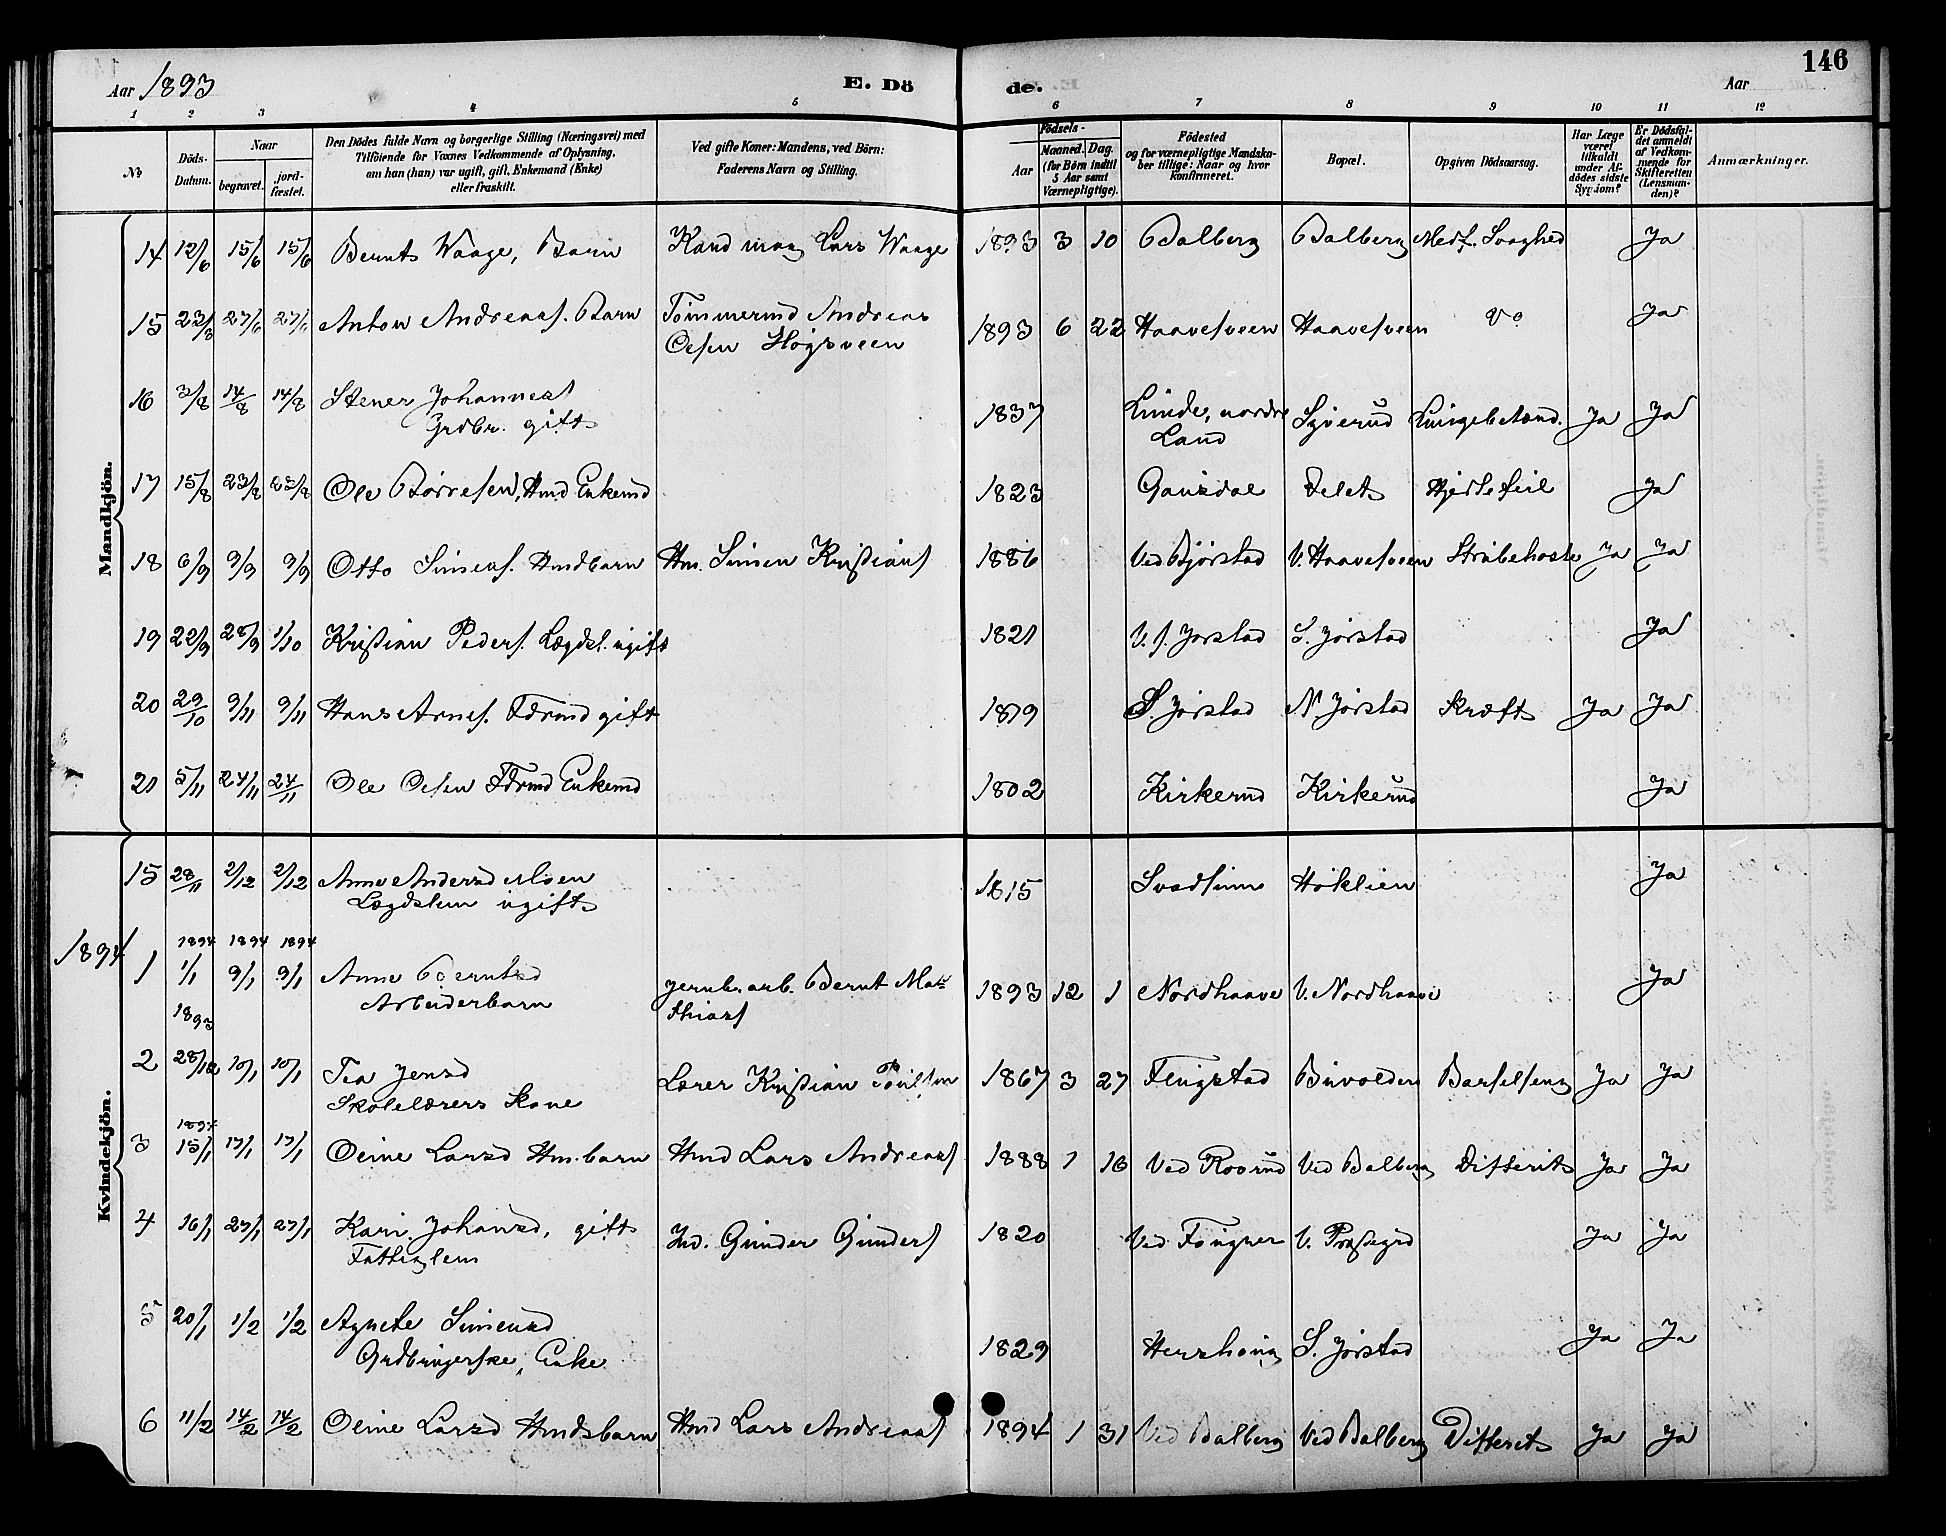 146
Aar 1893
E. Dö
de.
Aar
1 2 3 4 5 6 7 8 9 10 11 12
No
Döds-Datum.
Naar
begravet.
jord-fæstet.
Den Dödes fulde Navn og borgerlige Stilling (Næringsvei) med
Tilföiende for Voxnes Vedkommende af Oplysning,
om han (hun) var ugift, gift, Enkemand (Enke)
eller fraskilt.
Ved gifte Koner: Mandens, ved Börn:
Faderens Navn og Stilling.
Födsels-
Aar
Maaned. Dag.
(for Börn indtil
5 Aar samt
Værnepligtige).
Födested
og for værnepligtige Mandska-
ber tillige: Naar og hvor
konfirmeret.
Bopæl.
Opgiven Dödsaarsag.
Har Læge
været
tilkaldt
under Af-
dödes sidste
Sygdom?
Er Dödsfal-
det anmeldt
af Vedkom-
mende for
Skifteretten
(Lensman-
den)?
Anmærkninger.
Mandkjön.
14 12/6 15/6 15/6 Bernt Waage, Barn Lars Waage 1893 3 10 Balberg Balberg Medf. Svaghed Ja
15 27/6 27/6 Anton Andreass. Barn Tömmermd Andreas
Olsen Högsveen 1893 6 22 Haavesveen Haavesveen Do Ja
16 3/8 14/8 14/8 Stener Johanness
Grdbr. gift 1837 Linde, nordre
Land Sÿverud Lungebetænd. Ja Ja
17 15/8 23/8 23/8 Ole Börresen, Hmd Enkemd 1823 Gausdal Delet Hjertefeil Ja
18 6/9 9/9 9/9 Otto Simens. Hmdbarn Hm. Simen Kristians 1886 Ved Bjørstad V. Haavesveen Strubehoste Ja Ja
19 22/9 28/9 1/10 Kristian Peders. Lægdsl. ugift 1821 V. s. Jorstad S. Jørstad Ja
20 29/10 9/11 9/11 Hans Arnes. Fdrmd gift 1819 S. Jørstad N Jørstad Kræft Ja Ja
21 5/11 24/11 24/11 Ole Olsen Fdrmd Enkemd 1802 Kirkerud Kirkerud Ja
Kvindekjön.
15 28/11 2/12 2/12 Anne Andersd Moen
Lægdslem ugift 1815 Svadsum Høklien Ja
1894
1894 1894 1894
1 1/1 9/1 9/1 Anne Berntsd
Arbeiderbarn Jernb. arb. Bernt Mat-
thiass 1893 12 1 Nordhaave V. Nordhaave Ja
1893
2 28/12 10/1 10/1 Tea Jensd
Skolelærers Kone Lærer Kristian Poulsen 1867 3 27 Flugstad Buvolden Barselseng Ja Ja
1894
3 15/1 17/1 17/1 Oline Larsd Hm. barn Hmd Lars Andreass 1888 1 16 Ved Roorud Ved Balberg Difterit Ja Ja
4 16/1 27/1 27/1 Kari Johansd, gift
Fattiglem Ind. Gunder Gunders 1820 Ved Fougner V. Præstegrd Ja Ja
5 20/1 1/2 1/2 Agnete Simensd
Grdbrugerske, Enke 1829 Hershoug S. Jørstad Ja Ja
6 11/2 14/2 14/2 Oline Larsd Hmdsbarn Hmd Lars Andreass 1894 1 31 Ved Balberg Ved Balberg Difterit Ja Ja